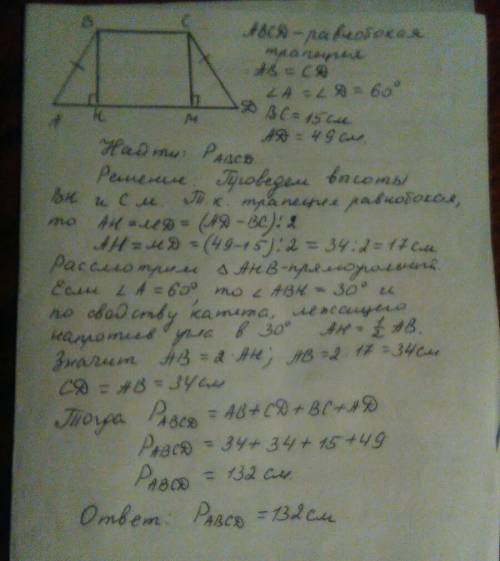 B C
A H M D
ABCD – равнобокая
трапеция
AB = CD
∠A = ∠D = 60°
BC = 15 см
AD = 49 см.
Найти: P ABCD
Решение. Проведем высоты
BH и CM. Т.к. трапеция равнобокая,
то AH = MD = (AD - BC) : 2
AH = MD = (49 - 15) : 2 = 34 : 2 = 17 см
Рассмотрим △ AHB - прямоугольный.
Если ∠A = 60°, то ∠ABH = 30° и
по свойству катета, лежащего
напротив угла в 30° AH = 1/2 AB.
Значит AB = 2 · AH; AB = 2 · 17 = 34 см
CD = AB = 34 см
Тогда P ABCD = AB + CD + BC + AD
P ABCD = 34 + 34 + 15 + 49
P ABCD = 132 см.
Ответ: P ABCD = 132 см